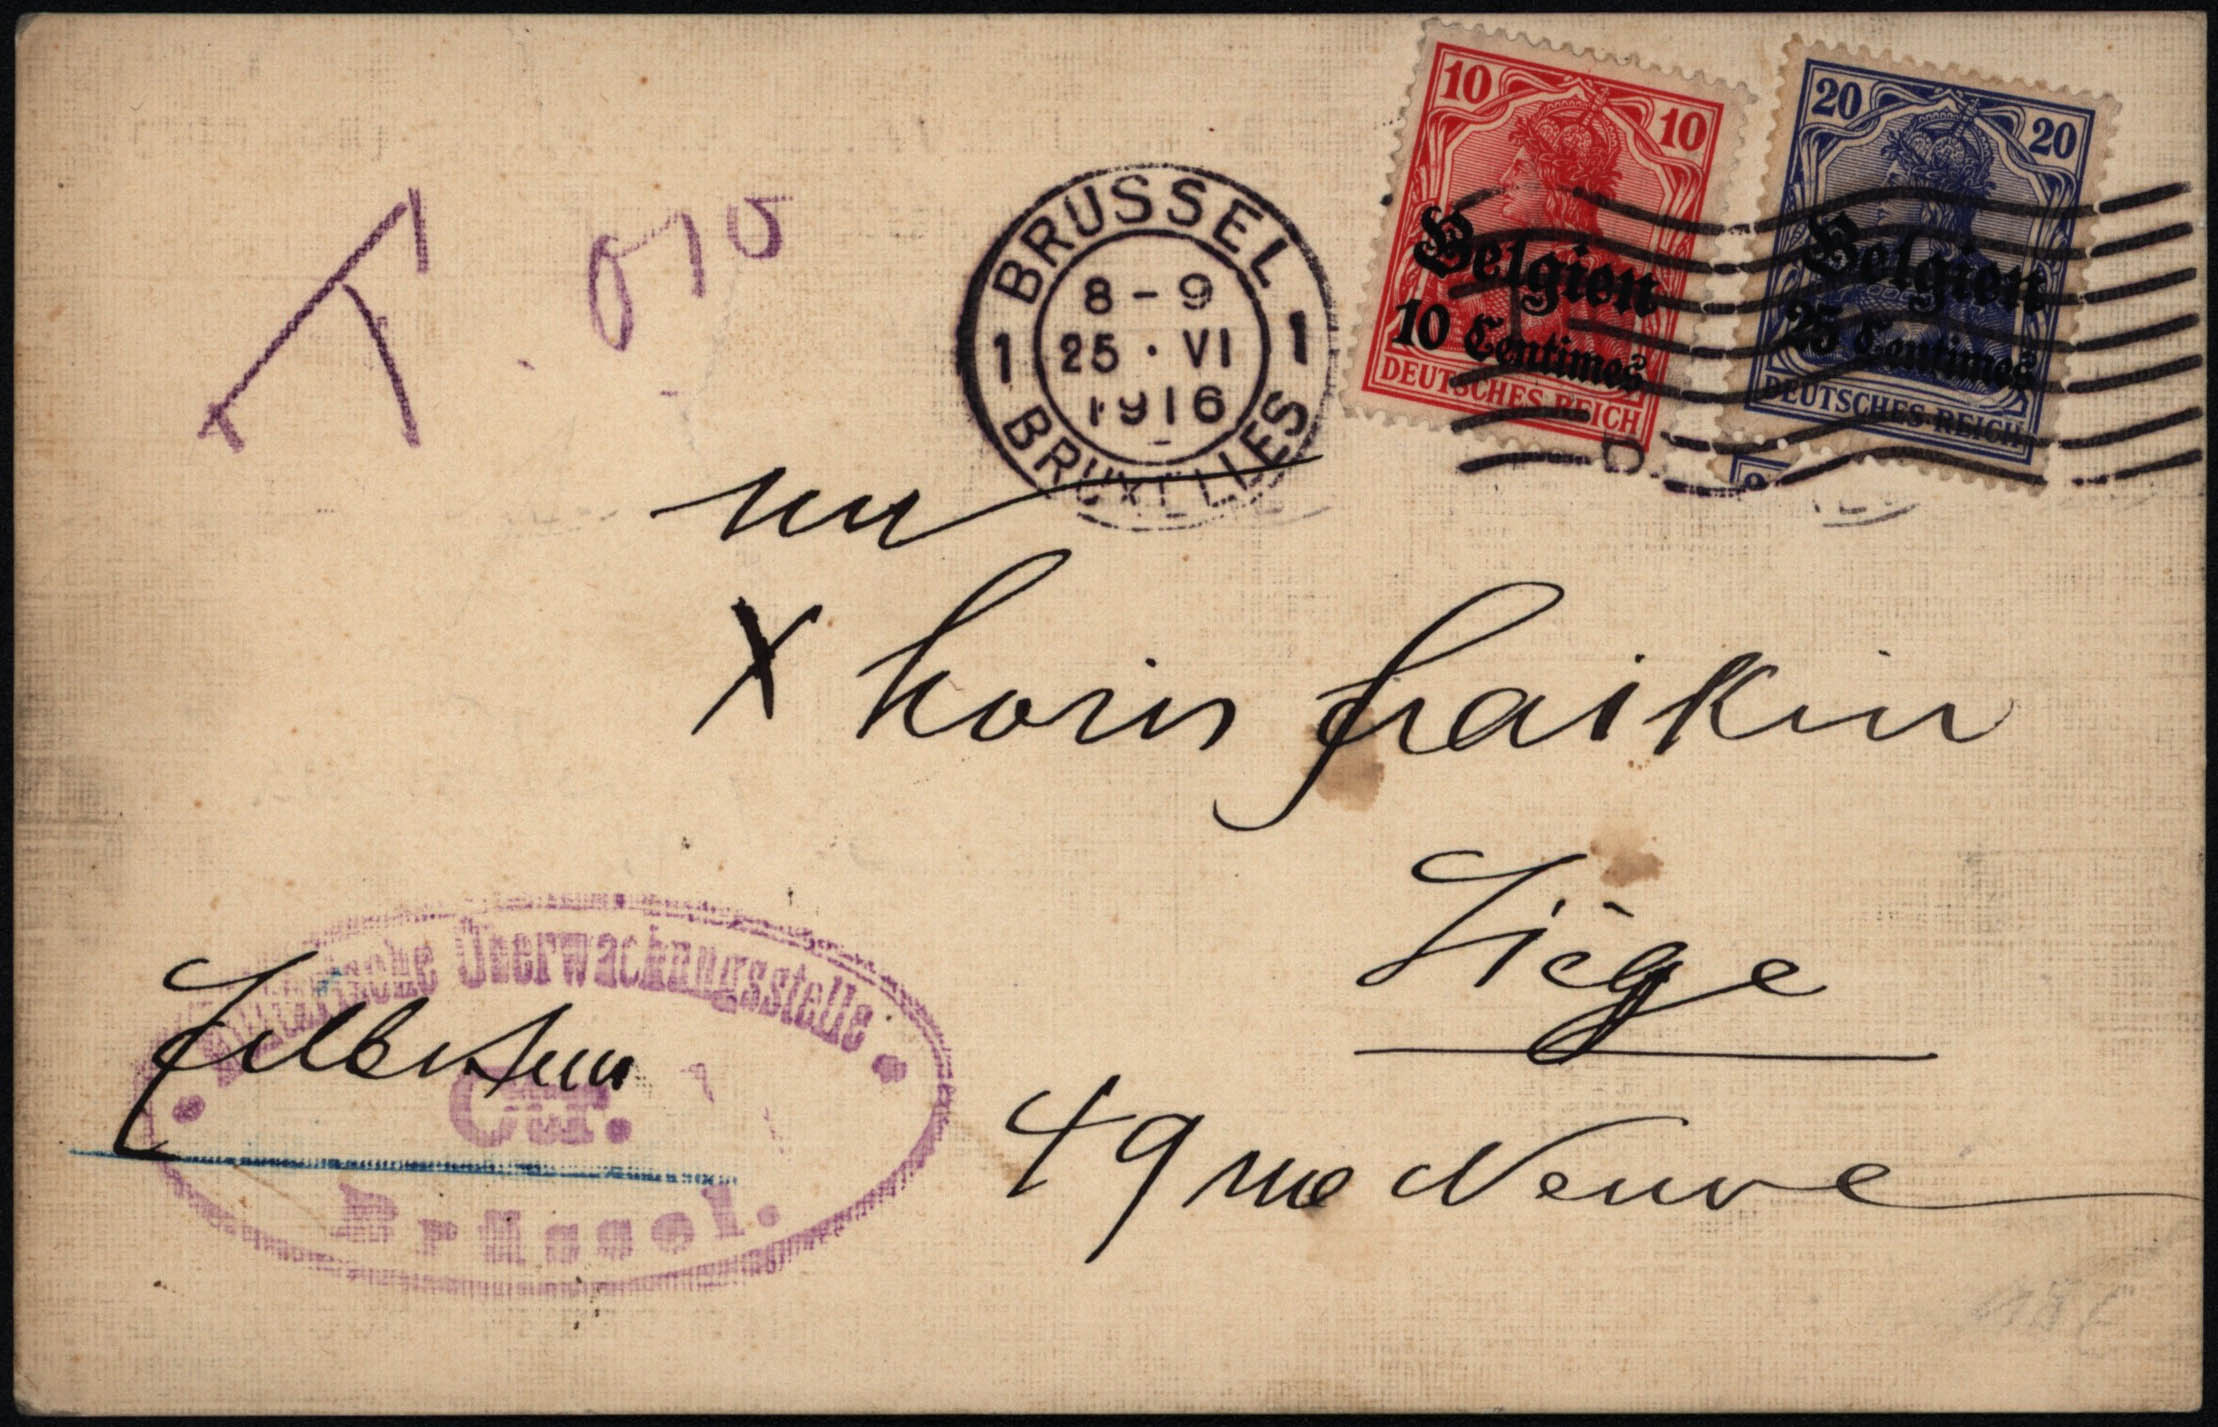 10 10
Belgien
10 Centimes
DEUTSCHES REICH
20 20
Belgien
25 Centimes
DEUTSCHES REICH
BRUSSEL
8 - 9
1 25 · VI 1
1916
BRUXELLES
T. 0,10
Xhoris fraikin
Liège
49 rue Neuve
Militärische Überwachungsstelle
Cür.
Brüssel.